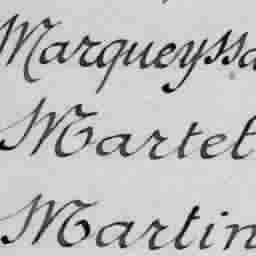 Marqueyssa
Martel
Martin